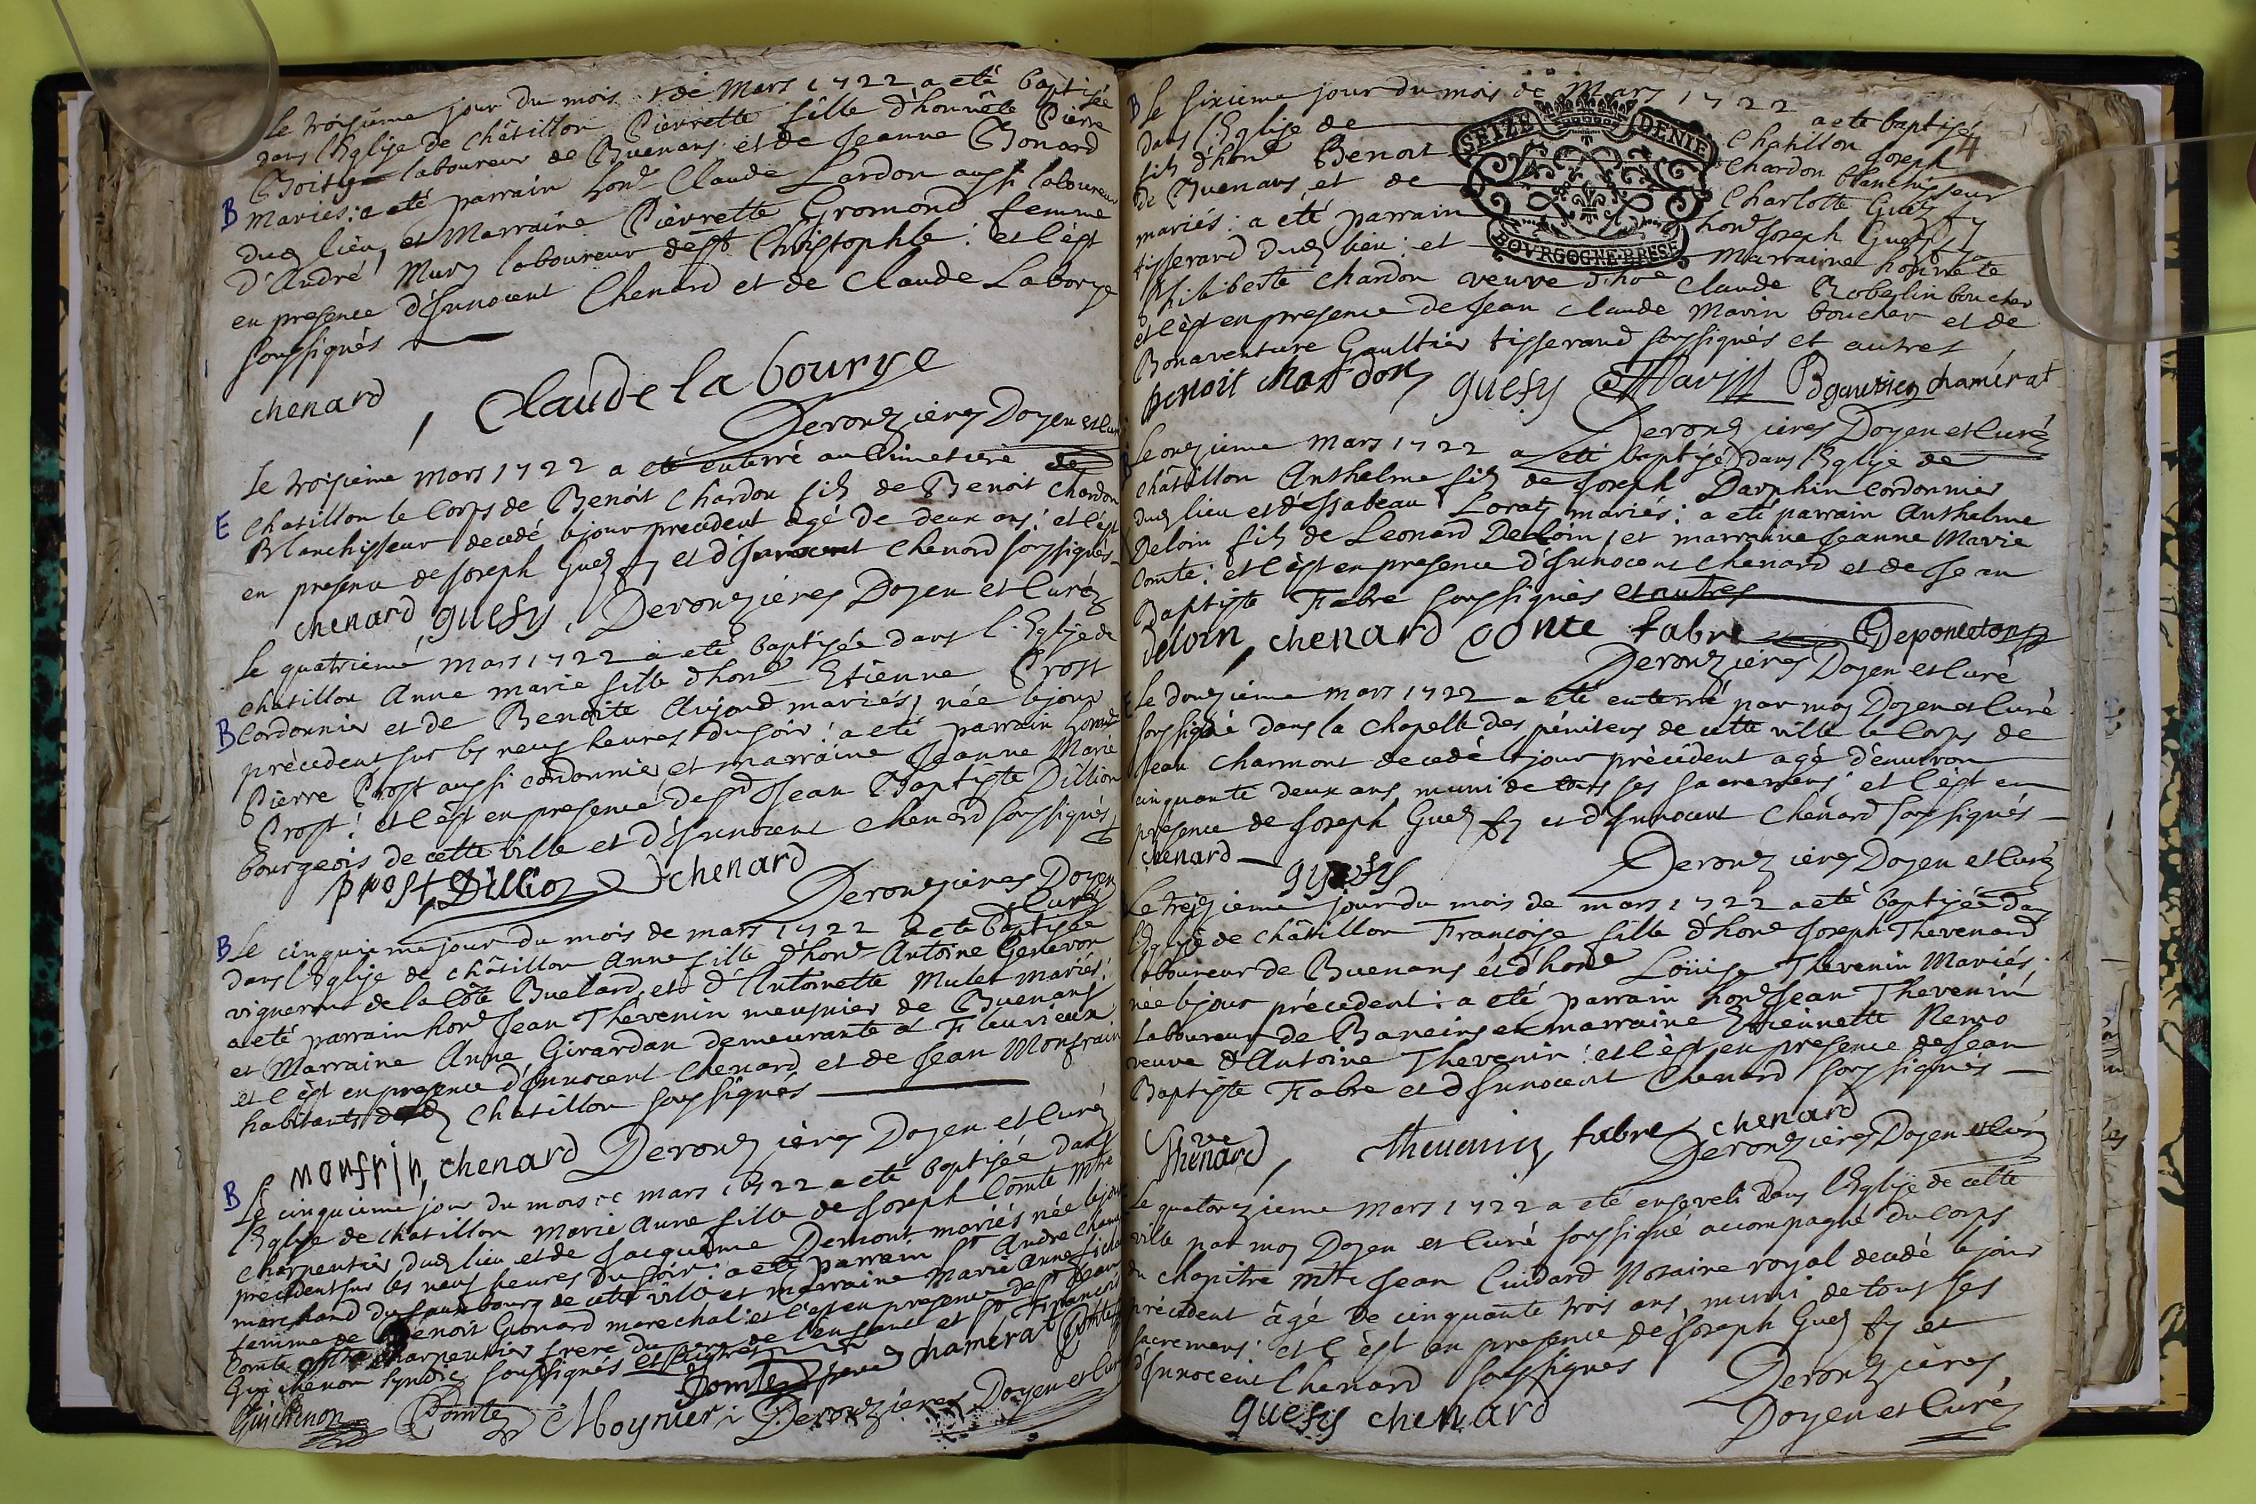 Le troisième jour du mois de Mars 1722 a eté baptisée
dans l'Eglise de châtillon Pierrette fille d'honnête Pierre
laboureur de Buenans et de Jeanne Bonard
B
mariés: a eté parrain hon.^e Claude Lardon aussi laboureur
dud lieu, et Marraine Pierrette Gromond femme
d'André Mury laboureur de S^t Christophle: et c'èst
en presence d'Innocent Chenard et de Claude Laborye
soussignés
chenard, Claude la bourye
Derouzières Doyen et Curé
Le troisième mars 1722 a eté enterré au Cimetiere de
E
Chatillon le Corps de Benoit Chardon fils de Benoit Chardon
Blanchisseur decedé le jour precedent agé de deux ans: et c'èst
en presence de Joseph Guesy et d'Innocent Chenard soussignés
chenard, guesy, Derouzières Doyen et Curé
Le quatrième mars 1722 a eté baptisée dans l'Eglise de
chatillon Anne marie fille d'hon^e Etienne Prost
B
Cordonnier et de Benoite Aujard mariés, née le jour
précedent sur les neuf heures du soir: a eté parrain honn^e
Pierre Prost aussi cordonnier et marraine Jeanne Marie
Prost: et c'èst en presence de S^r Jean Baptiste Dillion
bourgeois de cette ville et d'Innocent chenard soussignés
prost, Dillion chenard
Derouzieres Doyen
et Curé
B
Le cinquieme jour du mois de mars 1722 a eté baptisée
dans l'Eglise de châtillon Anne fille d'hon^e Antoine Genevon
vigneron de la Côte Buellard, et d'Antoinette Mulet mariés:
a eté parrain hon^e Jean Thévenin meusnier de Buenans
et Marraine Anne Girardan demeurante à Fleurieux
et c'èst en presence d'Innocent Chenard et de Jean Monfrain
habitants dud Chatillon soussignés
monfrin, chenard Derouzières Doyen et Curé
B
Le cinquième jour du mois de mars 1722 a eté baptisée dans
l'Eglise de chatillon Marie Anne fille de Joseph Comte m^tre
charpentier dud lieu et de Jacquême Demont mariés née le jour
precedent sur les neuf heures du soir: a eté parrain S^r André
marchand du fauxbourg de cette ville et marraine Marie Anne
femme de Benoit Gronard marechal: et c'est en presence de S^r Jean
Comte m^tre charpentier frere du pere de l'enfant et S^r François
Guichenon syndic soussignés et autres
Comte chamerat Comte
Guichenon Comte Moynier Derouzières Doyen et Curé
B
Le sixieme jour du mois de Mars 1722 a eté baptisé
4
dans l'Eglise de Chatillon Joseph
fils d'hon^e Benoit Chardon blanchisseur
de Buenans et de Charlotte Guesy
mariés: a été parrain hon^e Joseph Guesy
tisserand dud lieu: et marraine honnete
SEIZE DENIE
BOVRGOGNE BRESE
Philiberte Chardon veuve d'ho^e Claude Robelin boucher
et c'èst en presence de Jean Claude Marin boucher et de
Bonaventure Gaultier tisserand soussignés et autres
benoit chardon guesy Marin B gautier chamerat
Derouzieres Doyen et Curé
B
Le onzième Mars 1722 a eté baptisé dans l'Eglise de
châtillon Anthelme fils de Joseph Dauphin cordonnier
dud lieu et d'Issabeau Lorat mariés: a eté parrain Anthelme
Deloin fils de Leonard Deloin, et marraine Jeanne Marie
Comte: et c'èst en presence d'Innocent Chenard et de Jean
Baptiste Fabre soussignés et autres
deloin, chenard conte fabre Deponceton
Derouzières Doyen et Curé
E
Le douzième mars 1722 a eté enterré par moy Doyen et Curé
soussigné dans la Chapelle des pénitens de cette ville le Corps de
Jean Charmont decedé le jour précédent agé d'environ
cinquante deux ans muni de tous ses sacremens: et c'èst en
présence de Joseph Guesy et d'Innocent Chénard soussignés
chenard guesy Derouzières Doyen et Curé
Le treizieme jour du mois de mars 1722 a eté baptisée dans
l'Eglise de châtillon Françoise fille d'hon^e Joseph Thevenard
laboureur de Buenans et d'hon^e Loüise Thévenin Mariés
née le jour précedent: a eté parrain hon^e Jean Thevenin
Laboureur de Baneins et marraine Etiennette Remo
veuve d'Antoine Thevenin: et c'èst en presence de Jean
Baptiste Fabre et d'Innocent Chenard soussignés
Thevenard, thevenin, fabre, chenard
Derouzières Doyen et Curé
Le quatorzieme Mars 1722 a eté enseveli dans l'Eglise de cette
ville par moy Doyen et Curé soussigné accompagné du Corps
du chapitre m^tre Jean Cuidard Notaire royal decedé le jour
précedent âgé de cinquante trois ans, muni de tous ses
sacremens: et c'èst en presence de Joseph Guesy et
d'Innocent Chenard soussignés Derouzières
guesy chenard Doyen et Curé